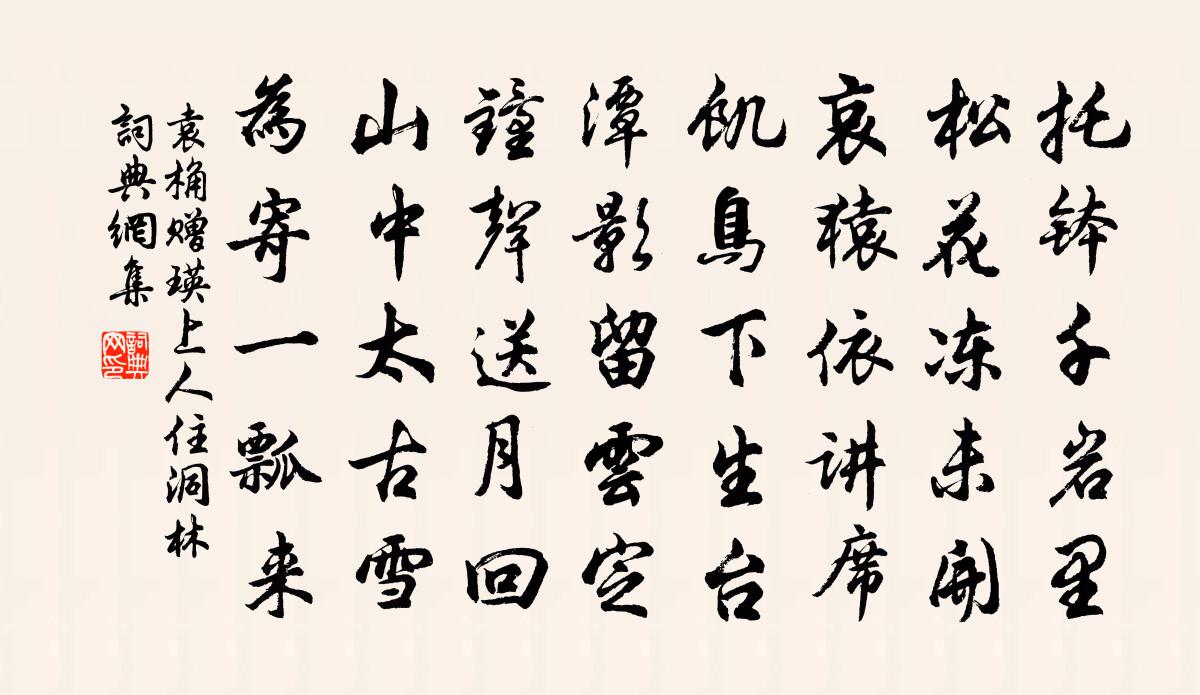 托钵千岩里
松花冻未開
哀猿依讲席
飢鳥下生台
潭影留雲定
鐘聲送月回
山中太古雪
為寄一瓢来
袁桷赠瑛上人住洞林
詞典網集
詞典网印